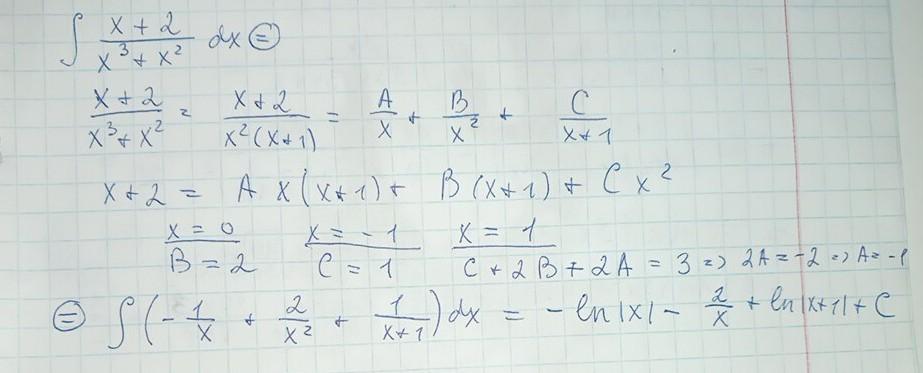 ∫ (x + 2)/(x³ + x²) dx ⊜
(x + 2)/(x³ + x²) = (x + 2)/(x²(x + 1)) = A/x + B/x² + C/(x + 1)
x + 2 = A x(x + 1) + B(x + 1) + C x²
x = 0 x = -1 x = 1
B = 2 C = 1 C + 2B + 2A = 3 => 2A = -2 => A = -1
⊜ ∫(-1/x + 2/x² + 1/(x + 1))dx = -ln|x| - 2/x + ln|x+1| + C